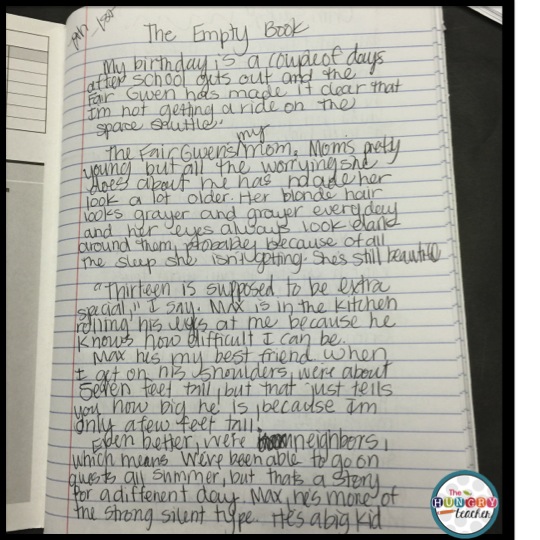 The Empty Book
My birthday is a couple of days
after school gets out and the
Fair Gwen has made it clear that
Im not getting a ride on the
space shuttle."
my
The Fair Gwens/mom. Mom's pretty
young but all the worrying she
does about me has made her
look a lot older. Her blonde hair
looks grayer and grayer everyday
and her eyes always look dark
around them, probably because of all
the sleep she isn't getting. She's still beautiful
"Thirteen is supposed to be extra
special," I say. Max is in the kitchen
rolling his eyes at me because he
knows how difficult I can be.
Max hes my best friend. When
I get on his shoulders, were about
Seven feet tall, but that just tells
you how big he is, because Im
only a few feet tall.
Even better, we're neighbors,
which means We've been able to go on
quests all summer, but thats a story
for a different day. Max, he's more of
the strong silent type. He's a big kid
The
HUNGRY
teacher